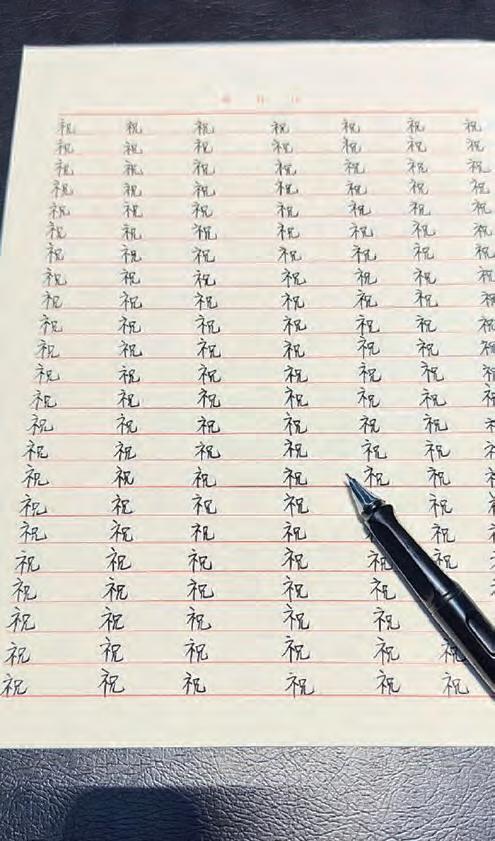 祝 祝 祝 祝 祝 祝 祝
祝 祝 祝 祝 祝 祝 祝
祝 祝 祝 祝 祝 祝 祝
祝 祝 祝 祝 祝 祝 祝
祝 祝 祝 祝 祝 祝 祝
祝 祝 祝 祝 祝 祝 祝
祝 祝 祝 祝 祝 祝 祝
祝 祝 祝 祝 祝 祝 祝
祝 祝 祝 祝 祝 祝 祝
祝 祝 祝 祝 祝 祝 祝
祝 祝 祝 祝 祝 祝 祝
祝 祝 祝 祝 祝 祝 祝
祝 祝 祝 祝 祝 祝
祝 祝 祝 祝 祝 祝
祝 祝 祝 祝 祝 祝
祝 祝 祝 祝 祝 祝
祝 祝 祝 祝 祝
祝 祝 祝 祝 祝
祝 祝 祝 祝 祝 祝
祝 祝 祝 祝 祝
祝 祝 祝 祝 祝
祝 祝 祝 祝 祝 祝
祝 祝 祝 祝 祝 祝